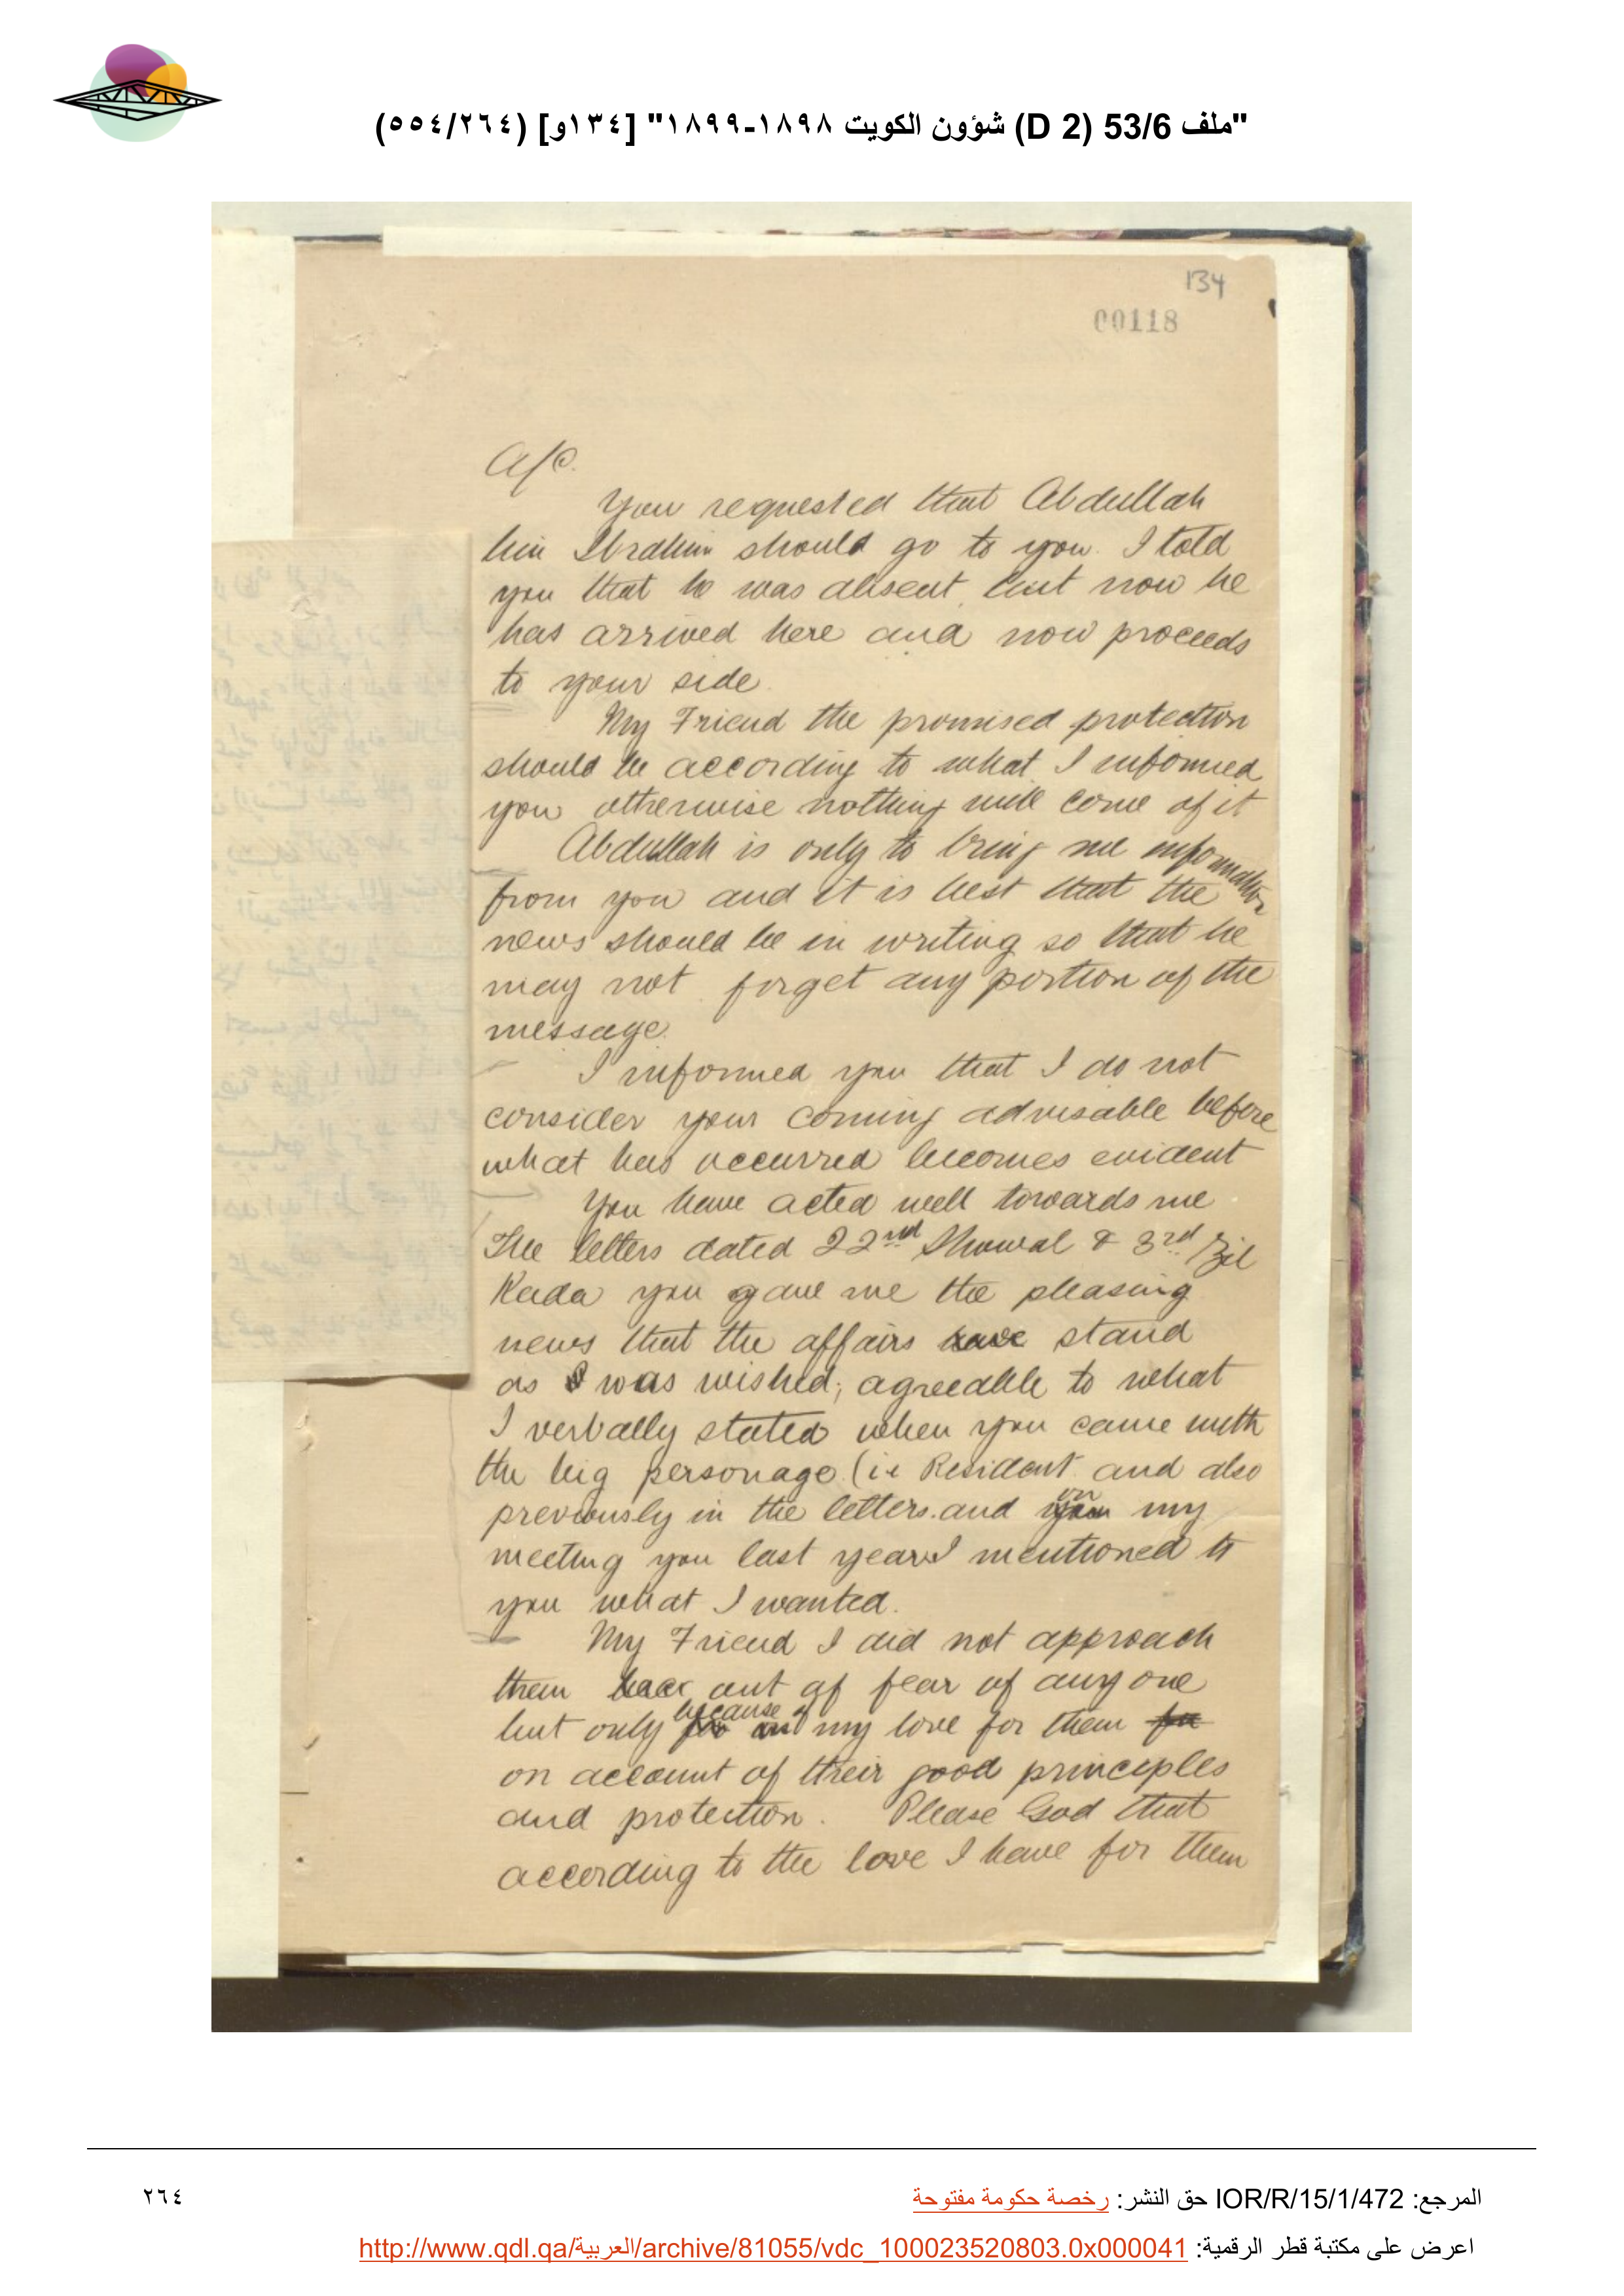 "ملف 53/6 (D 2) شؤون الكويت ١٨٩٨-١٨٩٩" [١٣٤و] (٥٥٤/٢٦٤)
134
00118
A/C.
You requested that Abdullah
bin Ibrahim should go to you. I told
you that he was absent, but now he
has arrived here and now proceeds
to your side.
My Friend the promised protection
should be according to what I informed
you otherwise nothing will come of it
Abdullah is only to bring me information
from you and it is best that the
news should be in writing so that he
may not forget any portion of the
message.
I informed you that I do not
consider your coming advisable before
what has occurred becomes evident
You have acted well towards me.
The letters dated 22nd Shawal & 3rd Zil
Kada you gave me the pleasing
news that the affairs have stand
as I was wished; agreeable to what
I verbally stated when you came with
the big personage (ie Resident and also
previously in the letters. and on my
meeting you last year I mentioned to
you what I wanted.
My Friend I did not approach
them out of fear of any one
but only because of my love for them for
on account of their good principles
and protection. Please God that
according to the love I have for them
المرجع: IOR/R/15/1/472 حق النشر: رخصة حكومة مفتوحة
٢٦٤
اعرض على مكتبة قطر الرقمية: http://www.qdl.qa/العربية/archive/81055/vdc_100023520803.0x000041